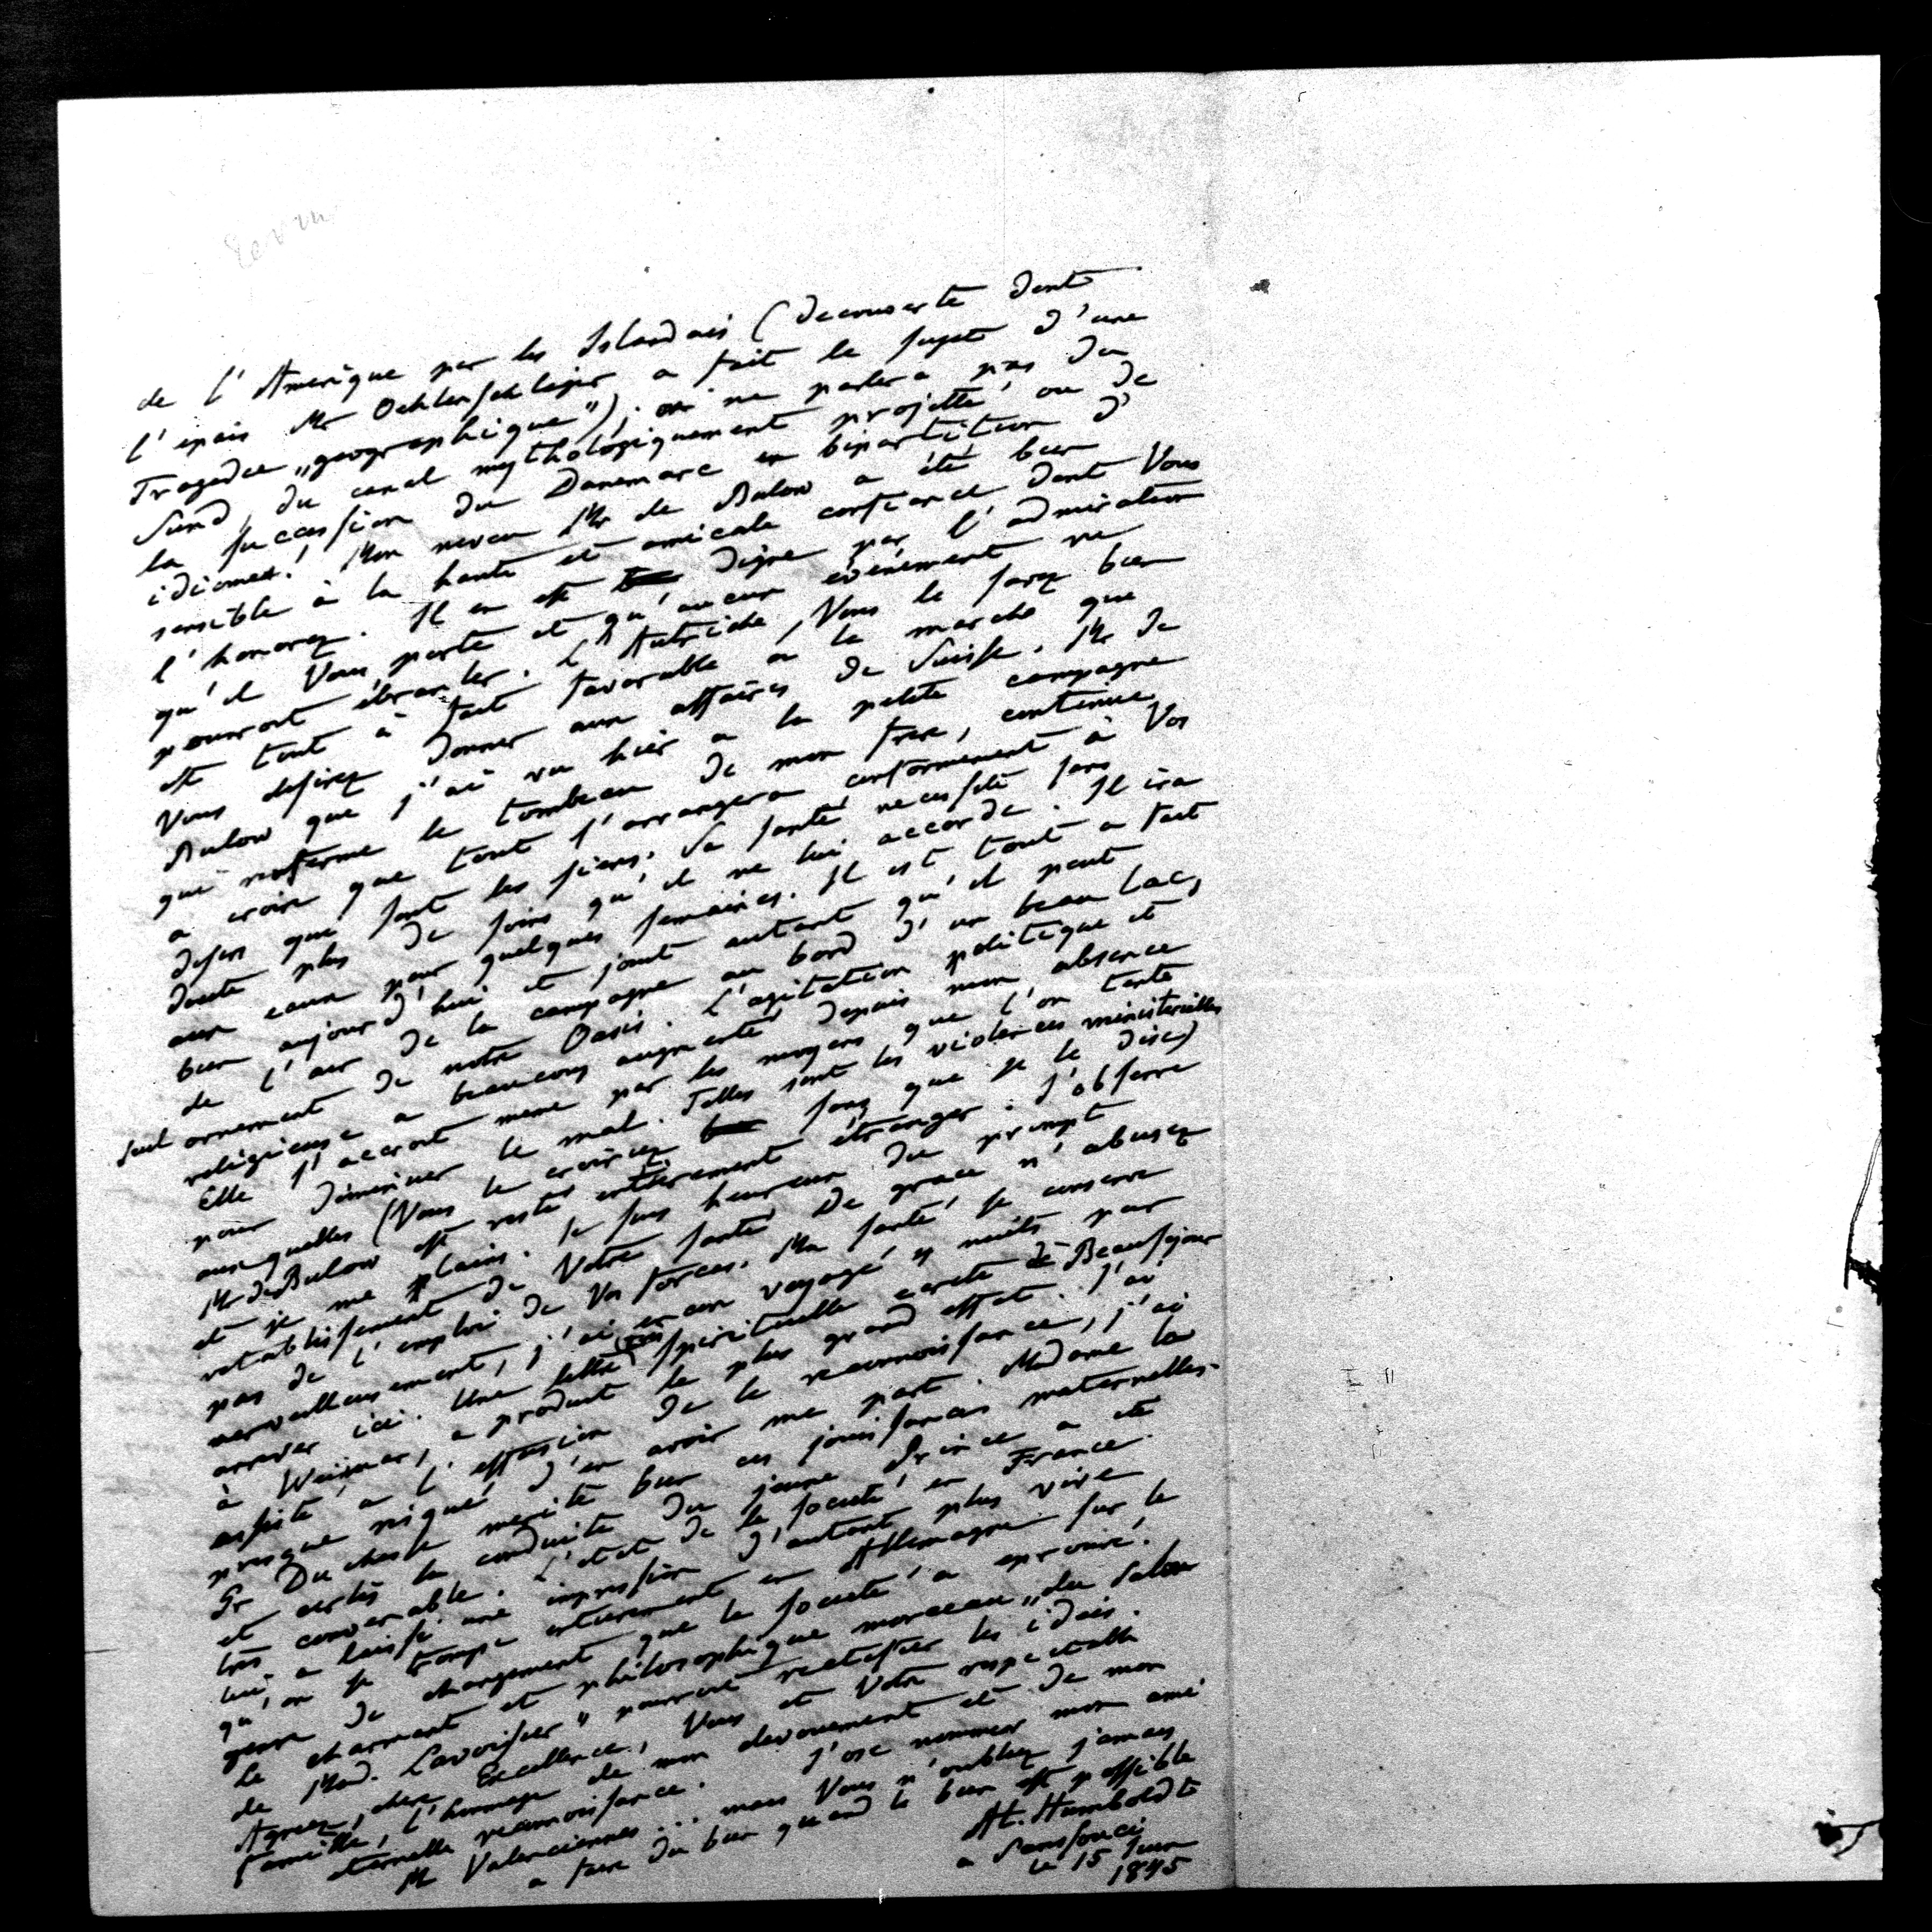 de l'Amerique par les Islandais (decouverte dont
l'epais Mr Oehlenschläger a fait le sujet d'une
Tragedie „geographique"); on ne parlera pas du
Sund, du canal mythologiquement projetté ou de
la succession du Danemarc en bipartition d'
idiomes! Mon neveu Mr de Bulow a été bien
sensible à la haute et amicale confiance dont Vous
l'honorez. Il en est digne par l'admiration
qu'il Vous porte et qu'aucun evénement ne
pourroit ébranler. L'Autriche, Vous le savez bien
est tout à fait favorable a la marche que
Vous desirez donner aux affaires de Suisse. Mr de
Bulow que j'ai vu hier a la petite campagne
qui renferme le tombeau de mon frere, continue
a croire que tout s'arrangera conformement à Vos
desirs que sont les siens. Sa santé necessite sans
doute plus de soins qu'il ne lui accorde. Il ira
aux eaux pour quelques semaines. Il est tout a fait
bien aujourd'hui et jouit autant qu'il peut
de l'air de la campagne au bord d'un beau lac,
seul ornement de notre Oasis. L'agitation politique et
religieuse a beaucoup augmenté depuis mon absence
Elle s'accroit meme par les moyens que l'on tente
pour diminuer le mal. Telles sont les violences ministerielles
auxquelles (Vous le croirez sans que je le dise)
Mr de Bulow est resté entierement étranger. J'observe
et je me plains. Je suis heureux du prompt
retablissement de Votre santé. De grace n'abusez
pas de l'emploi de Vos forces. Ma santé se conserve
merveilleusement, j'ai encor voyagé nuits pour
arriver ici. Une lettre spirituelle ecrite de Beausejour
à Weimar, a produit le plus grand effet. J'ai
assisté a l'effusion de la reconnoissance, j'ai
presque risqué d'en avoir ma part. Madame la
Gr Duchesse merite bien ces jouissances maternelles
et certes la conduite du jeune Prince a été
très convenable. L'etat de la societé en France
lui a laissé une impression d'autant plus vive
qu'on se trompe entierement en Allemagne sur le
genre de changement que la societé a eprouvé.
Le charmant et philosophique morceau „du Salon
de Mad. Lavoisier" pourroit rectifier les idées.
Agreez, chere Excellence, Vous et Votre respectable
famille, l'hommage de mon devouement et de mon
eternelle reconnoissance. J'ose nommer mon ami
Mr Valenciennes... mais Vous n'oubliez jamais
a faire du bien quand le bien est possible
Al. Humboldt
a Sanssouci
le 15 Juin
1845